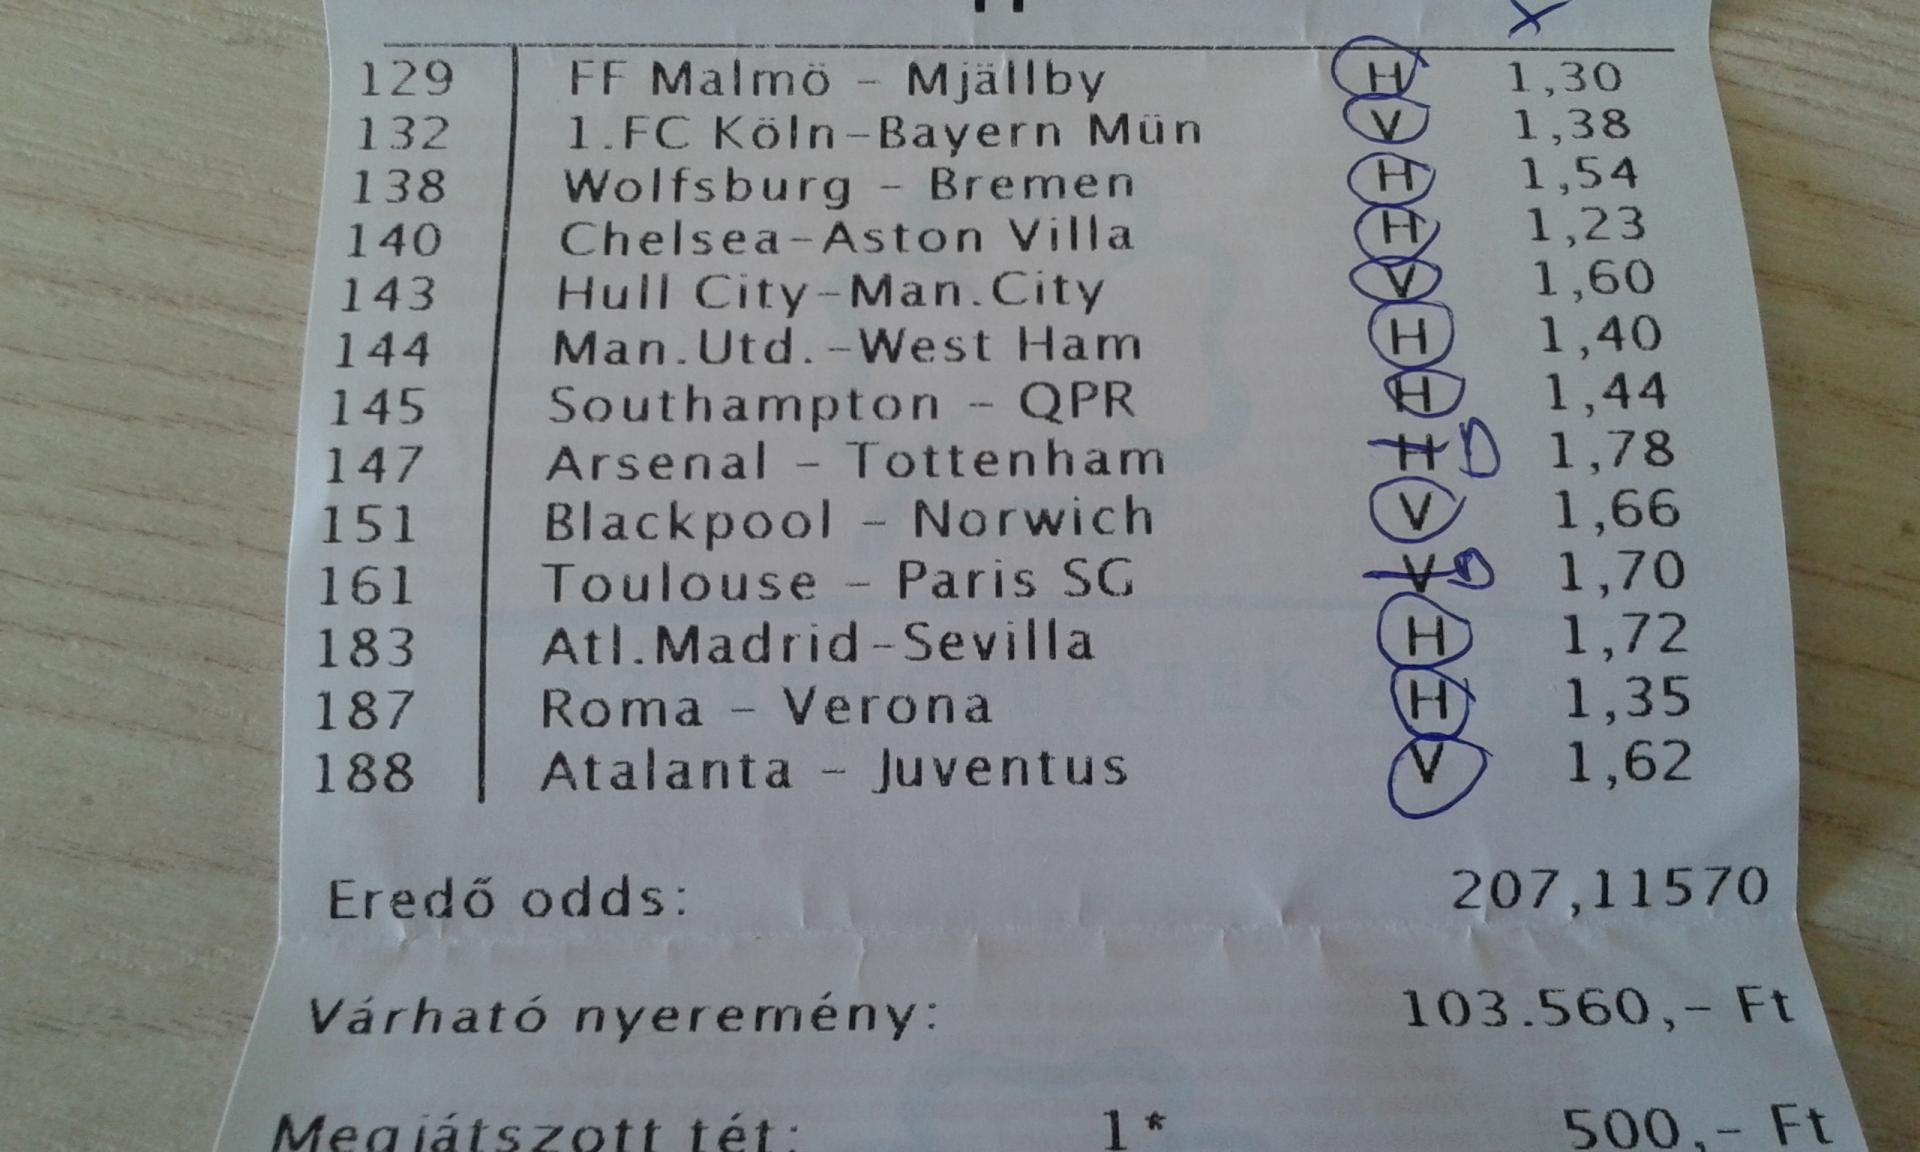 129 FF Malmö - Mjällby H 1,30
132 1.FC Köln-Bayern Mün V 1,38
138 Wolfsburg - Bremen H 1,54
140 Chelsea-Aston Villa H 1,23
143 Hull City-Man.City V 1,60
144 Man.Utd.-West Ham H 1,40
145 Southampton - QPR H 1,44
147 Arsenal - Tottenham H D 1,78
151 Blackpool - Norwich V 1,66
161 Toulouse - Paris SG V D 1,70
183 Atl.Madrid-Sevilla H 1,72
187 Roma - Verona H 1,35
188 Atalanta - Juventus V 1,62
Eredő odds: 207,11570
Várható nyeremény: 103.560,- Ft
Megjátszott tét: 1* 500,- Ft